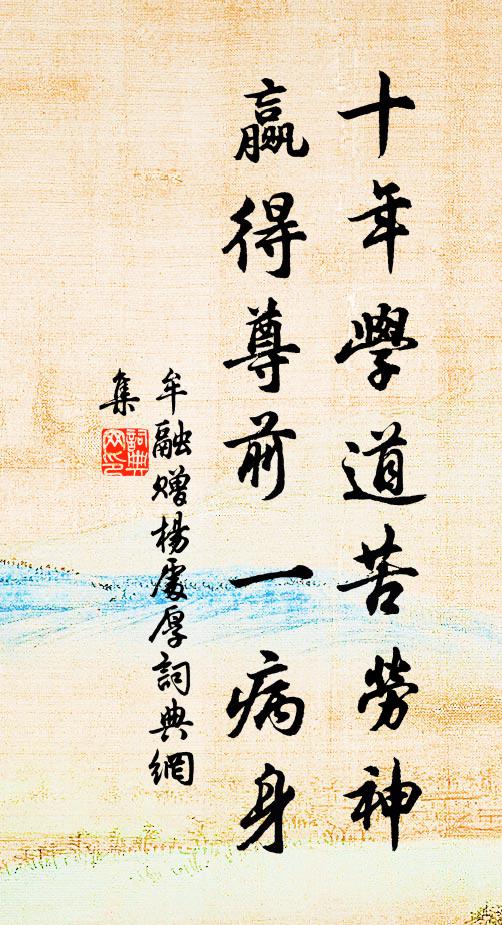 十年學道苦勞神
贏得尊前一病身
牟融贈楊處厚詞典網
集
詞典
網印